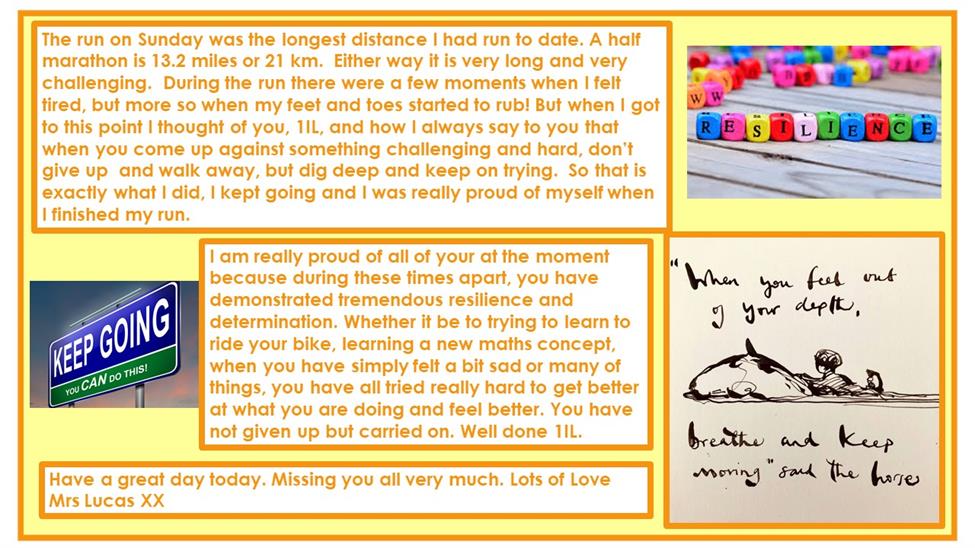 The run on Sunday was the longest distance I had run to date. A half
marathon is 13.2 miles or 21 km.  Either way it is very long and very
challenging.  During the run there were a few moments when I felt
tired, but more so when my feet and toes started to rub! But when I got
to this point I thought of you, 1IL, and how I always say to you that
when you come up against something challenging and hard, don't
give up  and walk away, but dig deep and keep on trying.  So that is
exactly what I did, I kept going and I was really proud of myself when
I finished my run.
RESILIENCE
KEEP GOING
YOU CAN DO THIS!
I am really proud of all of your at the moment
because during these times apart, you have
demonstrated tremendous resilience and
determination. Whether it be to trying to learn to
ride your bike, learning a new maths concept,
when you have simply felt a bit sad or many of
things, you have all tried really hard to get better
at what you are doing and feel better. You have
not given up but carried on. Well done 1IL.
"When you feel out
of your depth,
breathe and keep
moving" said the horse
Have a great day today. Missing you all very much. Lots of Love
Mrs Lucas XX